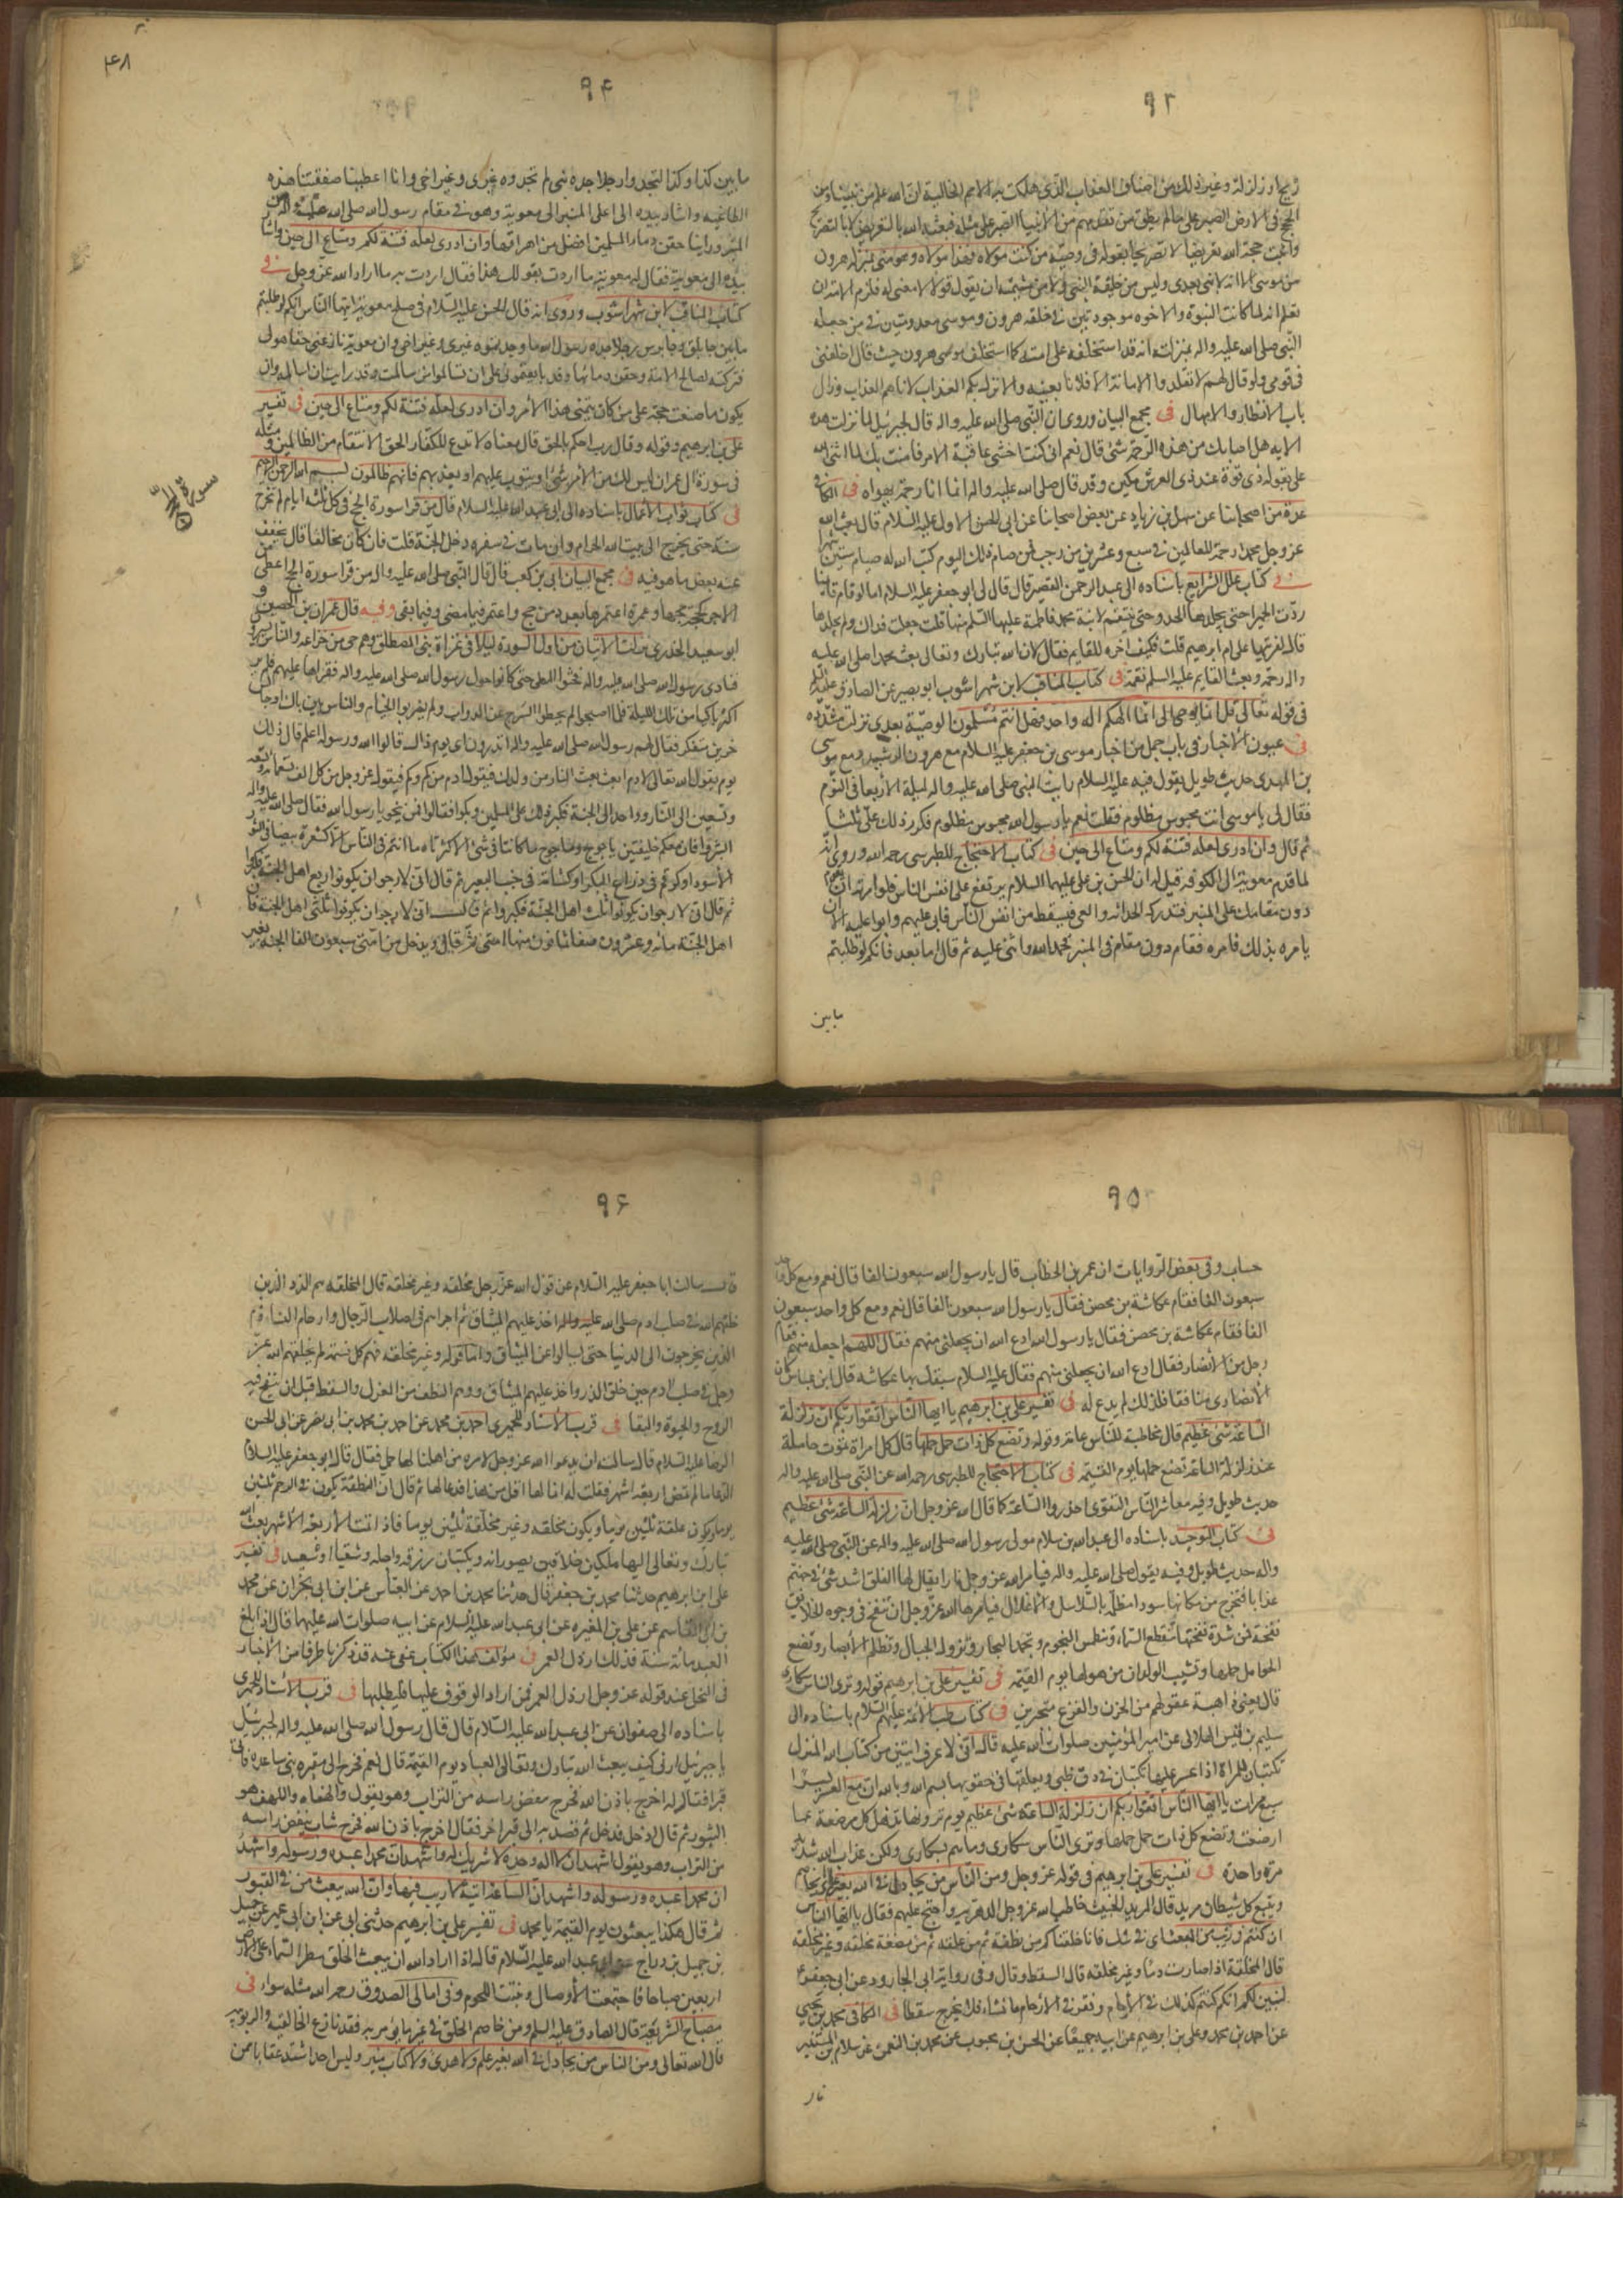 ٩٣
ريح او زلزلة وغير ذلك من اصناف العذاب الذى هلكت به الامم الخالية ان الله علم من نبينا ومن
الحجج فى الارض الصبر على ما لم يطق من تقدمهم من الانبياء الصبر على مثله فبعثه الله بالتعريض لا بالتصريح
واثبت حجة الله تعريضا لا تصريحا بقوله فى وصيه من كنت مولاه فهذا مولاه وهو منى بمنزلة هرون
من موسى الا انه لا نبى بعدى وليس من خليقة النبى ولا من شيمته ان يقول قولا لا معنى له فلزم الامة ان
تعلم انه لما كانت النبوة والاخوة موجودتين فى خلقة هرون ومعدومتين فى من جعله
النبى صلى الله عليه واله بمنزلته انه قد استخلفه على امته كما استخلف موسى هرون حيث قال اخلفنى
فى قومى ولو قال لهم لا تقلدوا الامامة الا فلانا بعينه والا نزل بكم العذاب لاتاهم العذاب وزال
باب الانظار والامهال فى مجمع البيان وروى ان النبى صلى الله عليه واله قال لجبرئيل لما نزلت هذه
الاية هل اصابك من هذه الرحمة شئ قال نعم انى كنت اخشى عاقبة الامر فامنت بك لما اثنى الله
على بقوله ذى قوة عند ذى العرش مكين وقد قال صلى الله عليه واله انما انا رحمة مهداة فى الكافى
عدة من اصحابنا عن سهل بن زياد عن بعض اصحابنا عن ابى الحسن الاول عليه السلام قال بعث الله
عز وجل محمدا رحمة للعالمين فى سبع وعشرين من رجب فمن صام ذلك اليوم كتب الله له صيام ستين شهرا
فى كتاب علل الشرايع باسناده الى عبد الرحمن القصير قال قال لى ابو جعفر عليه السلام اما لو قام قائمنا
ردت الحميراء حتى يجلدها الحد وحتى ينتقم لابنة محمد فاطمة عليها السلم منها قلت جعلت فداك ولم يجلدها
قال لفريتها على ام ابرهيم قلت فكيف اخره للقايم فقال لان الله تبارك وتعالى بعث محمدا صلى الله عليه
واله رحمة وبعث القايم عليه السلم نقمة فى كتاب المناقب لابن شهراشوب ابو بصير عن الصادق عليه السلام
فى قوله تعالى قل انما يوحى الى انما الهكم اله واحد فهل انتم مسلمون الوصية بعدى نزلت مشددة
فى عيون الاخبار فى باب جمل من اخبار موسى بن جعفر عليه السلام مع هرون الرشيد ومع موسى
بن المهدى حديث طويل يقول فيه عليه السلام رايت النبى صلى الله عليه واله ليلة الاربعا فى النوم
فقال لى يا موسى انت محبوس مظلوم فقلت نعم يا رسول الله محبوس مظلوم فكرر ذلك على ثلثا
ثم قال وان ادرى لعله فتنة لكم ومتاع الى حين فى كتاب الاحتجاج للطبرسى رحمه الله وروى انه
لما قدم معوية الى الكوفة قيل له ان الحسن بن على عليهما السلام مرتفع على انفس الناس فلو امرته ان يقوم
دون مقامك على المنبر فتدركه الحداثة والعى فيسقط من انفس الناس فابى عليهم وابوا عليه الا ان
يامره بذلك فامره فقام دون مقامه فى المنبر فحمد الله واثنى عليه ثم قال اما بعد فانكم لو طلبتم
ما بين
٤٨
٩٤
ما بين كذا وكذا لتجدوا رجلا جده نبى لم تجدوه غيرى وغير اخى وانا اعطينا صفقتنا هذه
الطاغية واشار بيده الى اعلى المنبر الى معوية وهو فى مقام رسول الله صلى الله عليه واله من
المنبر وراينا حقن دماء المسلمين افضل من اهراقها وان ادرى لعله فتنة لكم ومتاع الى حين واشار
بيده الى معوية فقال له معوية ما اردت بقولك هذا فقال اردت به ما اراد الله عز وجل فى
كتاب المناقب لابن شهراشوب وروى انه قال الحسن عليه السلام فى صلح معوية ايها الناس انكم لو طلبتم
ما بين جابلق وجابرس رجلا جده رسول الله ما وجدتموه غيرى وغير اخى وان معوية نازعنى حقا هو لى
فتركته لصلاح الامة وحقن دمائها وقد بايعتمونى على ان تسالموا من سالمت وقد رايت ان اسالمه وان
يكون ما صنعت حجة على من كان يتمنى هذا الامر وان ادرى لعله فتنة لكم ومتاع الى حين فى تفسير
على بن ابرهيم وقوله وقال رب احكم بالحق قال معناه لا تدع للكفار الحق الانتقام من الظالمين ومثله
فى سورة ال عمران ليس لك من الامر شئ او يتوب عليهم او يعذبهم فانهم ظالمون بسم الله الرحمن الرحيم
سورة الحج
فى كتاب ثواب الاعمال باسناده الى ابى عبد الله عليه السلام قال من قرا سورة الحج فى كل ثلثة ايام لم تخرج
سنته حتى يخرج الى بيت الله الحرام وان مات فى سفره دخل الجنة قلت فان كان مخالفا قال يخفف
عنه بعض ما هو فيه فى مجمع البيان ابى بن كعب قال قال النبى صلى الله عليه واله من قرا سورة الحج اعطى من
الاجر كحجة حجها وعمرة اعتمرها بعدد من حج واعتمر فيما مضى وفيما بقى وفيه قال عمران بن الحصين و
ابو سعيد الخدرى نزلت الايتان من اول السورة ليلا فى غزاة بنى المصطلق وهم حى من خزاعة والناس يسيرون
فنادى رسول الله صلى الله عليه واله فحثوا المطى حتى كانوا حول رسول الله صلى الله عليه واله فقراها عليهم فلم ير
اكثر باكيا من تلك الليلة فلما اصبحوا لم يحطوا السرج عن الدواب ولم يضربوا الخيام والناس بين باك او جالس
حزين متفكر فقال لهم رسول الله صلى الله عليه واله اتدرون اى يوم ذاك قالوا الله ورسوله اعلم قال ذلك
يوم يقول الله تعالى لادم ابعث بعث النار من ولدك فيقول ادم من كم وكم فيقول عز وجل من كل الف تسعمائة وتسعة
وتسعين الى النار وواحدا الى الجنة فكبر ذلك على المسلمين وبكوا فقالوا فمن ينجو يا رسول الله فقال صلى الله عليه واله
ابشروا فان معكم خليقتين ياجوج وماجوج ما كانتا فى شئ الا كثرتاه ما انتم فى الناس الا كشعرة بيضا فى الثور
الاسود او كرقم فى ذراع البكر او كشامة فى جنب البعير ثم قال انى لارجو ان تكونوا ربع اهل الجنة فكبروا
ثم قال انى لارجو ان تكونوا ثلث اهل الجنة فكبروا ثم قال انى لارجو ان تكونوا ثلثى اهل الجنة فان
اهل الجنة مائه وعشرون صفا ثمانون منها امتى ثم قال ويدخل من امتى سبعون الفا الجنة بغير
٩٥
حساب وفى بعض الروايات ان عمر بن الخطاب قال يا رسول الله سبعون الفا قال نعم ومع كل واحد
سبعون الفا فقام عكاشة بن محصن فقال يا رسول الله سبعون الفا قال نعم ومع كل واحد سبعون
الفا فقام عكاشة بن محصن فقال يا رسول الله ادع الله ان يجعلنى منهم فقال اللهم اجعله منهم فقام
رجل من الانصار فقال ادع الله ان يجعلنى منهم فقال عليه السلام سبقك بها عكاشة قال ابن عباس كان
الانصارى منافقا فلذلك لم يدع له فى تفسير على بن ابرهيم يا ايها الناس اتقوا ربكم ان زلزلة
الساعة شئ عظيم قال مخاطبة للناس عامة وقوله وتضع كل ذات حمل حملها قال كل امراة تموت حاملة
عند زلزلة الساعة تضع حملها يوم القيمة فى كتاب الاحتجاج للطبرسى رحمه الله عن النبى صلى الله عليه واله
حديث طويل وفيه معاشر الناس التقوى احذروا الساعة كما قال الله عز وجل ان زلزلة الساعة شئ عظيم
فى كتاب التوحيد باسناده الى عبد الله بن سلام مولى رسول الله صلى الله عليه واله عن النبى صلى الله عليه
واله حديث طويل وفيه يقول صلى الله عليه واله فيامر الله عز وجل نارا يقال لها الفلق اشد شئ فى جهنم
عذابا فتخرج من مكانها سودا مظلمة بالسلاسل والاغلال فيامرها الله عز وجل ان تنفخ فى وجوه الخلايق
نفخة فمن شدة نفختها تنقطع السماء وتنطمس النجوم وتجمد البحار وتزول الجبال وتظلم الابصار وتضع
الحوامل حملها وتشيب الولدان من هولها يوم القيمة فى تفسير على بن ابرهيم قوله وترى الناس سكارى
قال يعنى ذاهبة عقولهم من الحزن والفزع متحيرين فى كتاب طب الائمة عليهم السلام باسناده الى
سليم بن قيس الهلالى عن امير المؤمنين صلوات الله عليه قال انى لاعرف ايتين من كتاب الله المنزل
تكتبان للمراة اذا عسر عليها تكتبان فى رق ظبى ويعلقها فى حقويها بسم الله وبالله ان مع العسر يسرا
سبع مرات يا ايها الناس اتقوا ربكم ان زلزلة الساعة شئ عظيم يوم ترونها تذهل كل مرضعة عما
ارضعت وتضع كل ذات حمل حملها وترى الناس سكارى وما هم بسكارى ولكن عذاب الله شديد
مرة واحدة فى تفسير على بن ابرهيم فى قوله عز وجل ومن الناس من يجادل فى الله بغير علم
ويتبع كل شيطان مريد قال المريد الخبيث خاطب الله عز وجل الدهرية واحتج عليهم فقال يا ايها الناس
ان كنتم فى ريب من البعث اى فى شك فانا خلقناكم من نطفة ثم من علقة ثم من مضغة مخلقة وغير مخلقة
قال المخلقة اذا صارت دما وغير مخلقة قال السقط وقال وفى رواية ابى الجارود عن ابى جعفر ع
لنبين لكم انكم كنتم كذلك فى الارحام ونقر فى الارحام ما نشاء فلا يخرج سقطا فى الكافى محمد بن يحيى
عن احمد بن محمد وعلى بن ابرهيم عن ابيه جميعا عن الحسن بن محبوب عن محمد بن النعمن عن سلام بن المستنير
قال
٩۶
قال سالت ابا جعفر عليه السلام عن قول الله عز وجل مخلقة وغير مخلقة قال المخلقة هم الذر الذين
خلقهم الله فى صلب ادم صلى الله عليه واله اخذ عليهم الميثاق ثم اجراهم فى اصلاب الرجال وارحام النساء وهم
الذين يخرجون الى الدنيا حتى يسالوا عن الميثاق واما قوله وغير مخلقة فهم كل نسمة لم يخلقهم الله عز
وجل فى صلب ادم حين خلق الذر واخذ عليهم الميثاق وهم النطف من العزل والسقط قبل ان تنفخ فيه
الروح والحيوة والبقا فى قرب الاسناد للحميرى احمد بن محمد عن احمد بن محمد بن ابى نصر عن ابى الحسن
الرضا عليه السلام قال سالته ان يدعو الله عز وجل لامراة من اهلنا لها حمل فقال قال ابو جعفر عليه السلام
الدعا ما لم تمض اربعة اشهر فقلت له انما لها اقل من هذا فدعا لها ثم قال ان النطفة تكون فى الرحم ثلثين
يوما ويكون علقة ثلثين يوما ويكون مخلقة وغير مخلقة ثلثين يوما فاذا تمت الاربعة الاشهر بعث الله
تبارك وتعالى اليها ملكين خلاقين يصورانه ويكتبان رزقه واجله وشقيا او سعيدا فى تفسير
على ابن ابرهيم حدثنا محمد بن جعفر قال حدثنا محمد بن احمد عن العباس عن ابن ابى نجران عن محمد
بن ابى القاسم عن على بن المغيره عن ابى عبد الله عليه السلام عن ابيه صلوات الله عليهما قال اذا بلغ
العبد مائة سنة فذلك ارذل العمر فى مؤلف هذا الكتاب عفى عنه قد ذكرنا طرفا من الاخبار
فى النحل عند قوله عز وجل ارذل العمر فمن اراد الوقوف عليها فليطلبها فى قرب الاسناد للحميرى
باسناده الى صفوان عن ابى عبد الله عليه السلام قال قال رسول الله صلى الله عليه واله لجبرئيل
يا جبرئيل ارنى كيف يبعث الله تبارك وتعالى العباد يوم القيمة قال نعم فخرج الى مقبرة بنى ساعدة فاتى
قبرا فقال له اخرج باذن الله فخرج رجل ينفض راسه من التراب وهو يقول والهفاه واللهف هو
الثبور ثم قال ادخل فدخل ثم قصد به الى قبر اخر فقال اخرج باذن الله فخرج شاب ينفض راسه
من التراب وهو يقول اشهد ان لا اله وحده لا شريك له واشهد ان محمدا عبده ورسوله واشهد
ان محمدا عبده ورسوله واشهد ان الساعة اتية لا ريب فيها وان الله يبعث من فى القبور
ثم قال هكذا يبعثون يوم القيمة يا محمد فى تفسير على بن ابرهيم حدثنى ابى عن ابن ابى عمير عن جميل
بن دراج عن ابى عبد الله عليه السلام قال اذا اراد الله ان يبعث الخلق مطر السماء على الارض
اربعين صباحا فاجتمعت الاوصال ونبتت اللحوم وفى امالى الصدوق رحمه الله مثله سواء فى
مصباح الشريعة قال الصادق عليه السلم ومن خاصم الخلق فى غير ما يؤمر به فقد نازع الخالقية والربوبية
قال الله تعالى ومن الناس من يجادل فى الله بغير علم ولا هدى ولا كتاب منير وليس احد اشد عقابا ممن